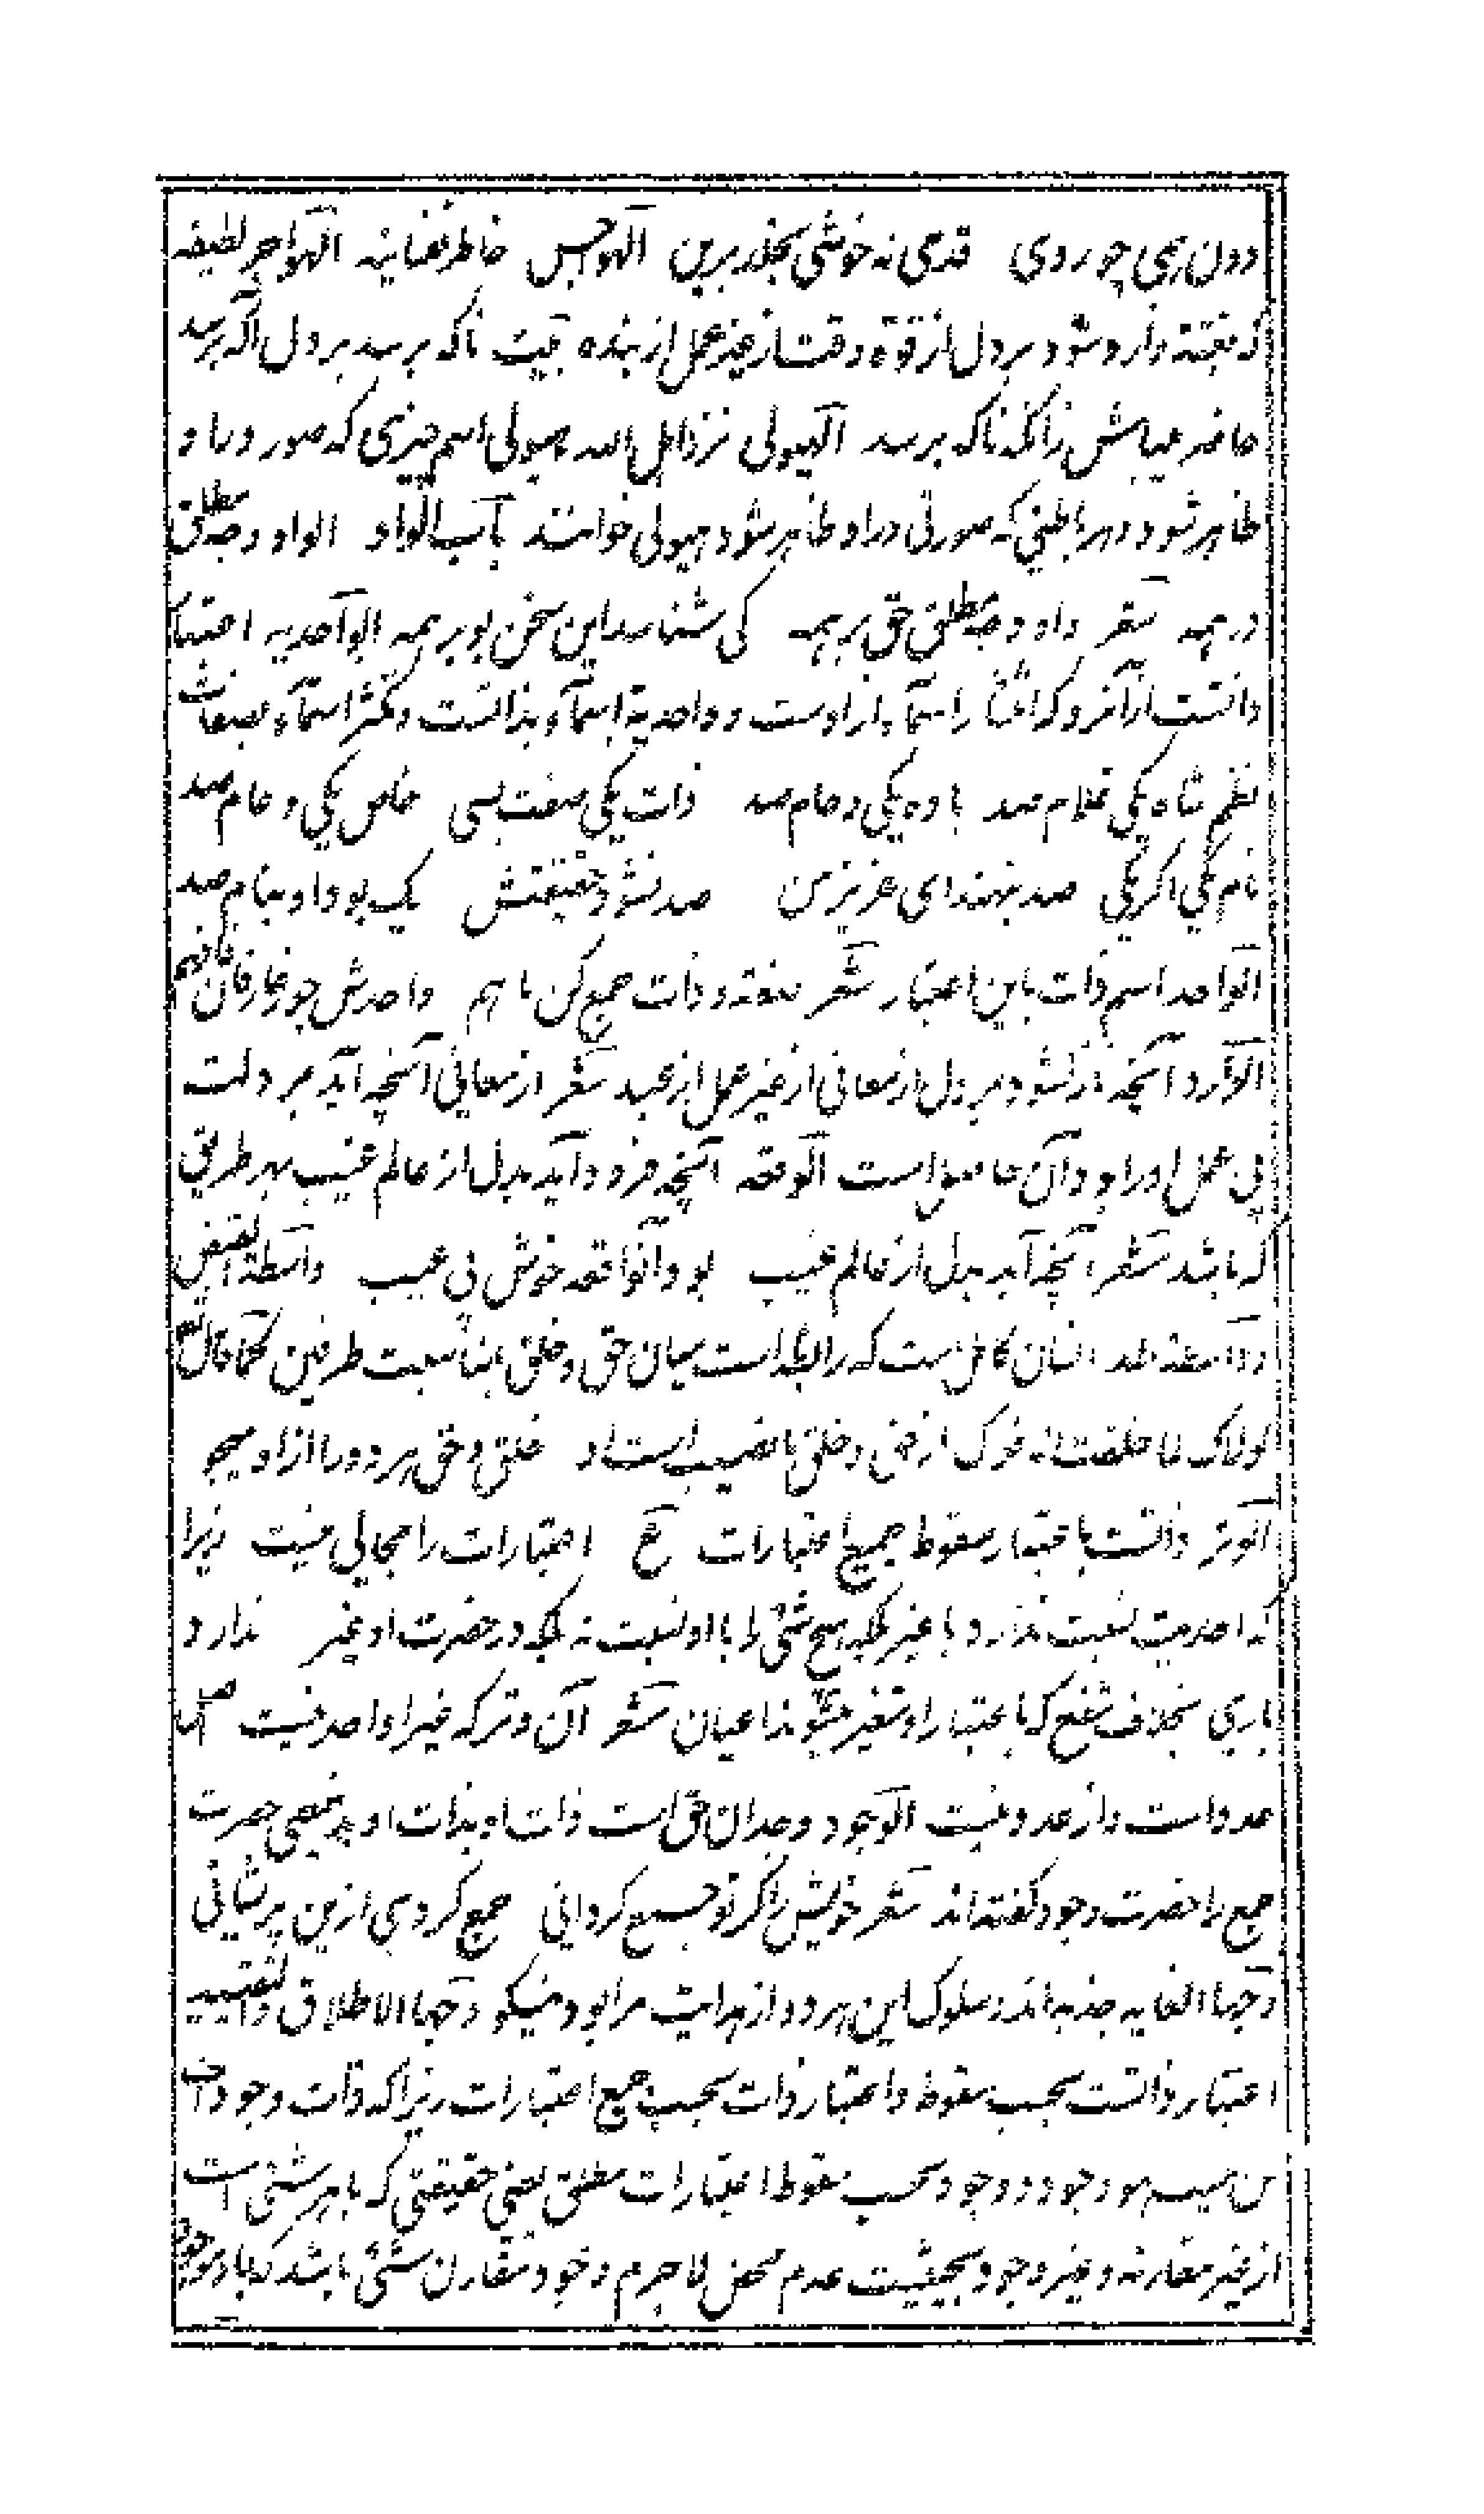 دون رهی چو روی قدمی نه خوشی بگذر برین الهواجس خاطر نفسانیه الهواجم لطیفه
که بغتة وارد شود بر دل از قوة وقت از غیر عمل از بنده بیت ناگه برسد بر دل اگه برسد
حاضر میباش زانکه ناگه برسد الهیولی نزد اهل الله هیولی اسم چیزی که صور درو
ظاهر شود و هر باطنی که صورتی در او ظاهر شود هیولی خوانند باب الواو الواو وجه مطلق
در همه شعر واو وجه مطلق حق بر همه کی شناسد این سخن بو بر همه الواحدیه اعتبار
ذاتست از آنرو که انتشا را سماء از اوست و واحدیة اسماء بذاتست و تکثر اسماء بصفات
نظم شاه یکی غلام صد باده یکی و جام صد ذات یکی صفت بسی خاص یکی و عام صد
نام یکی اگر یکی صد بنهند ای عزیز من صد نشود حقیقتش یک بود او بنام صد
الواحد اسم ذات باین اعتبار شعر صفة و ذات جمع کن با هم واحدش جو عارفان
الوارد آنچه نازل شود بر دل از معانی از غیر عمل از عبد شعر از معانی آنچه آید بر دلت
بی عمل وارد بود آن جامع است الواقعه آنچه فرود آید بدل از عالم غیب بهر طریق
که باشد شعر آنچه آید بدل از عالم غیب بود آن واقعه خوش بی عیب واسطة الفیض
و واسطة المدد انسان کامل است که رابطه است میان حق و خلق بمناسبت طرفین کما قال
لولاک لما خلقت الافلاک از حق و خلق با نصیب است او خلق و حق هر دو را از او میجو
الوتر ذاتست باعتبار سقوط جمیع اعتبارات ع اعتبارات را مجالی نیست زیرا
که احدیت نسبت ندارد با غیر بلکه هیچ شئ را با او نسبت نه بلکه در حضرت او غیر ندارد
باری بخلاف شفع که باعتبار او متغیر میشوند اعیان شعر آن وتر که غیر او احد نیست اصل
عدد است و از عدد نیست الوجود وجدان حق است ذات او بذات او یعنی حضرت
جمع را حضرت وجود گفته اند شعر خویش را گر تو جمع گردانی جمع گردی ازین پریشانی
وجها العنایه جذبه اند و سلوک این هر دو از هدایت مرا بود نیکو وجها الاطلاق والتقیید
اعتبار ذاتست بحسب سقوط و اعتبار ذات بحسب جمیع اعتبارات زیرا که ذات وجود است
من حیث هو وجود و وجود بحسب سقوط اعتبارات مطلق یعنی حقیقتی که با هر شئ است
از غیر مقارنه و غیر وجود بحیثیت عدم محض لاجرم وجود مقارن شئ باشد که باو موجود